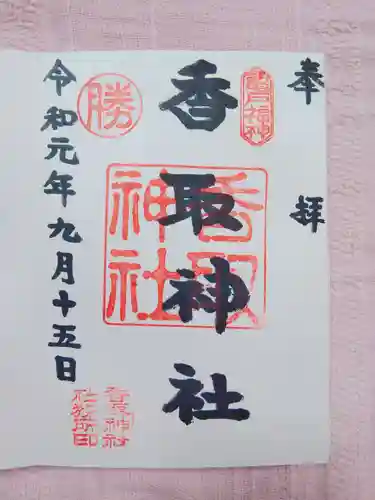 奉拝
香取神社
香取神社
勝
令和元年九月十五日
香取神社
社務所印